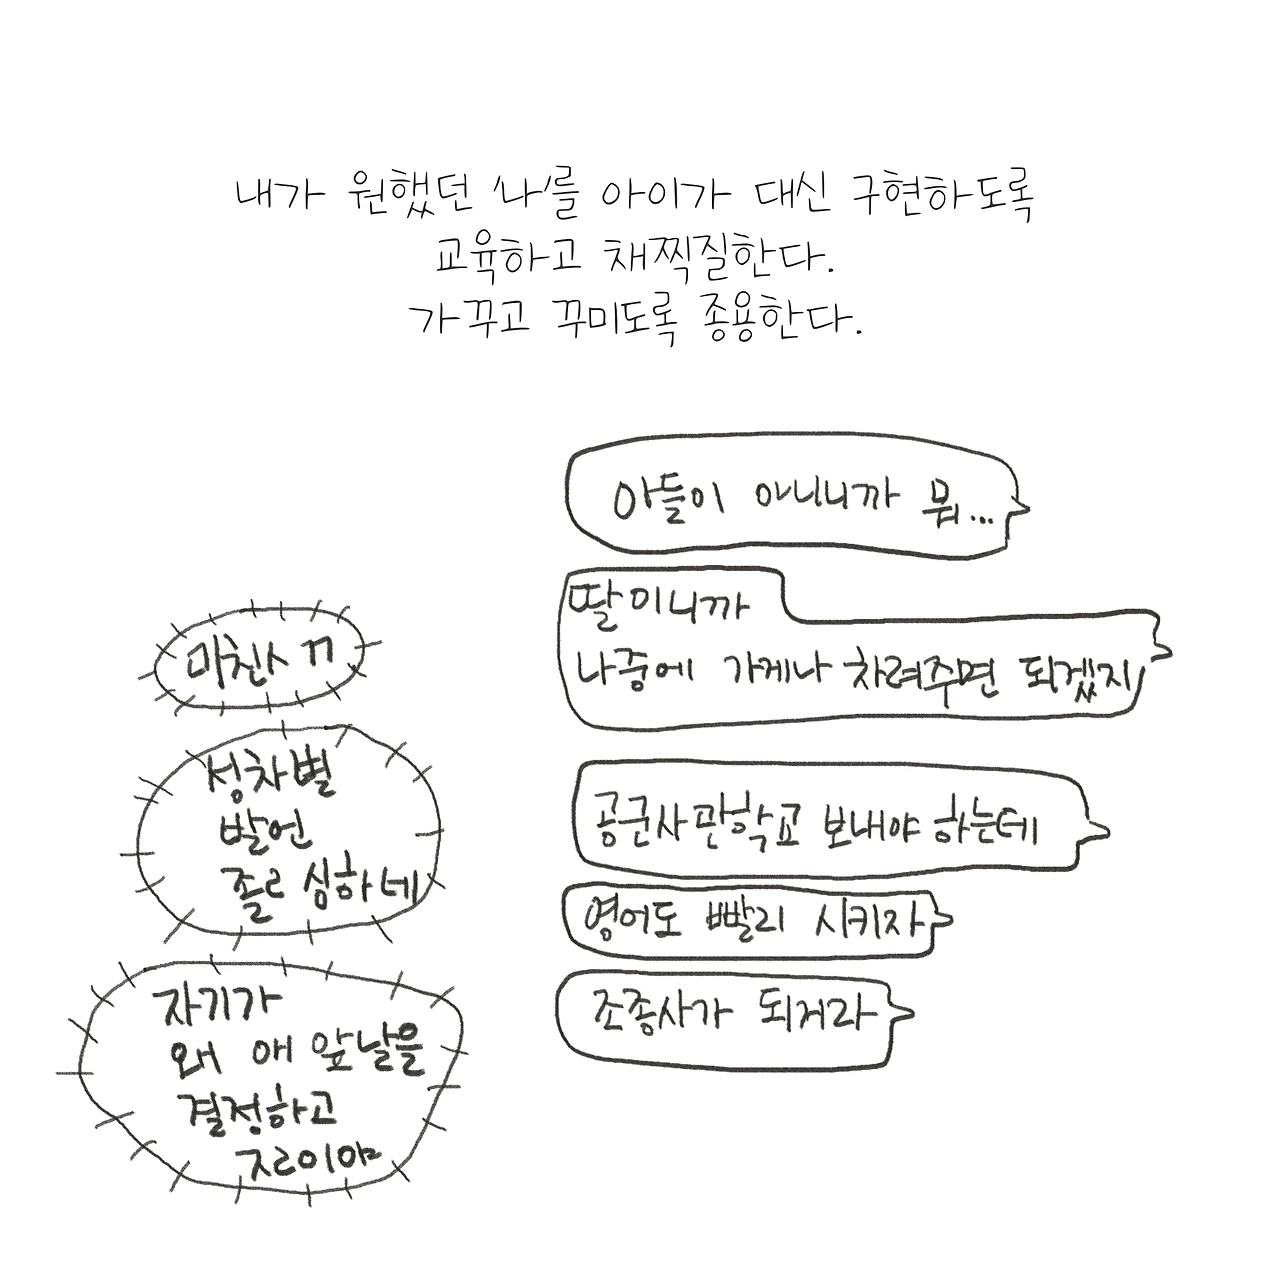 내가 원했던 '나'를 아이가 대신 구현하도록
교육하고 채찍질한다.
가꾸고 꾸미도록 종용한다.
아들이 아니니까 뭐...
딸이니까
나중에 가게나 차려주면 되겠지
미친ㅅㄲ
성차별
발언
졸ㄹ 심하네
공군사관학교 보내야 하는데
영어도 빨리 시키자
조종사가 되거라
자기가
왜 애 앞날을
결정하고
ㅈㄹ이야